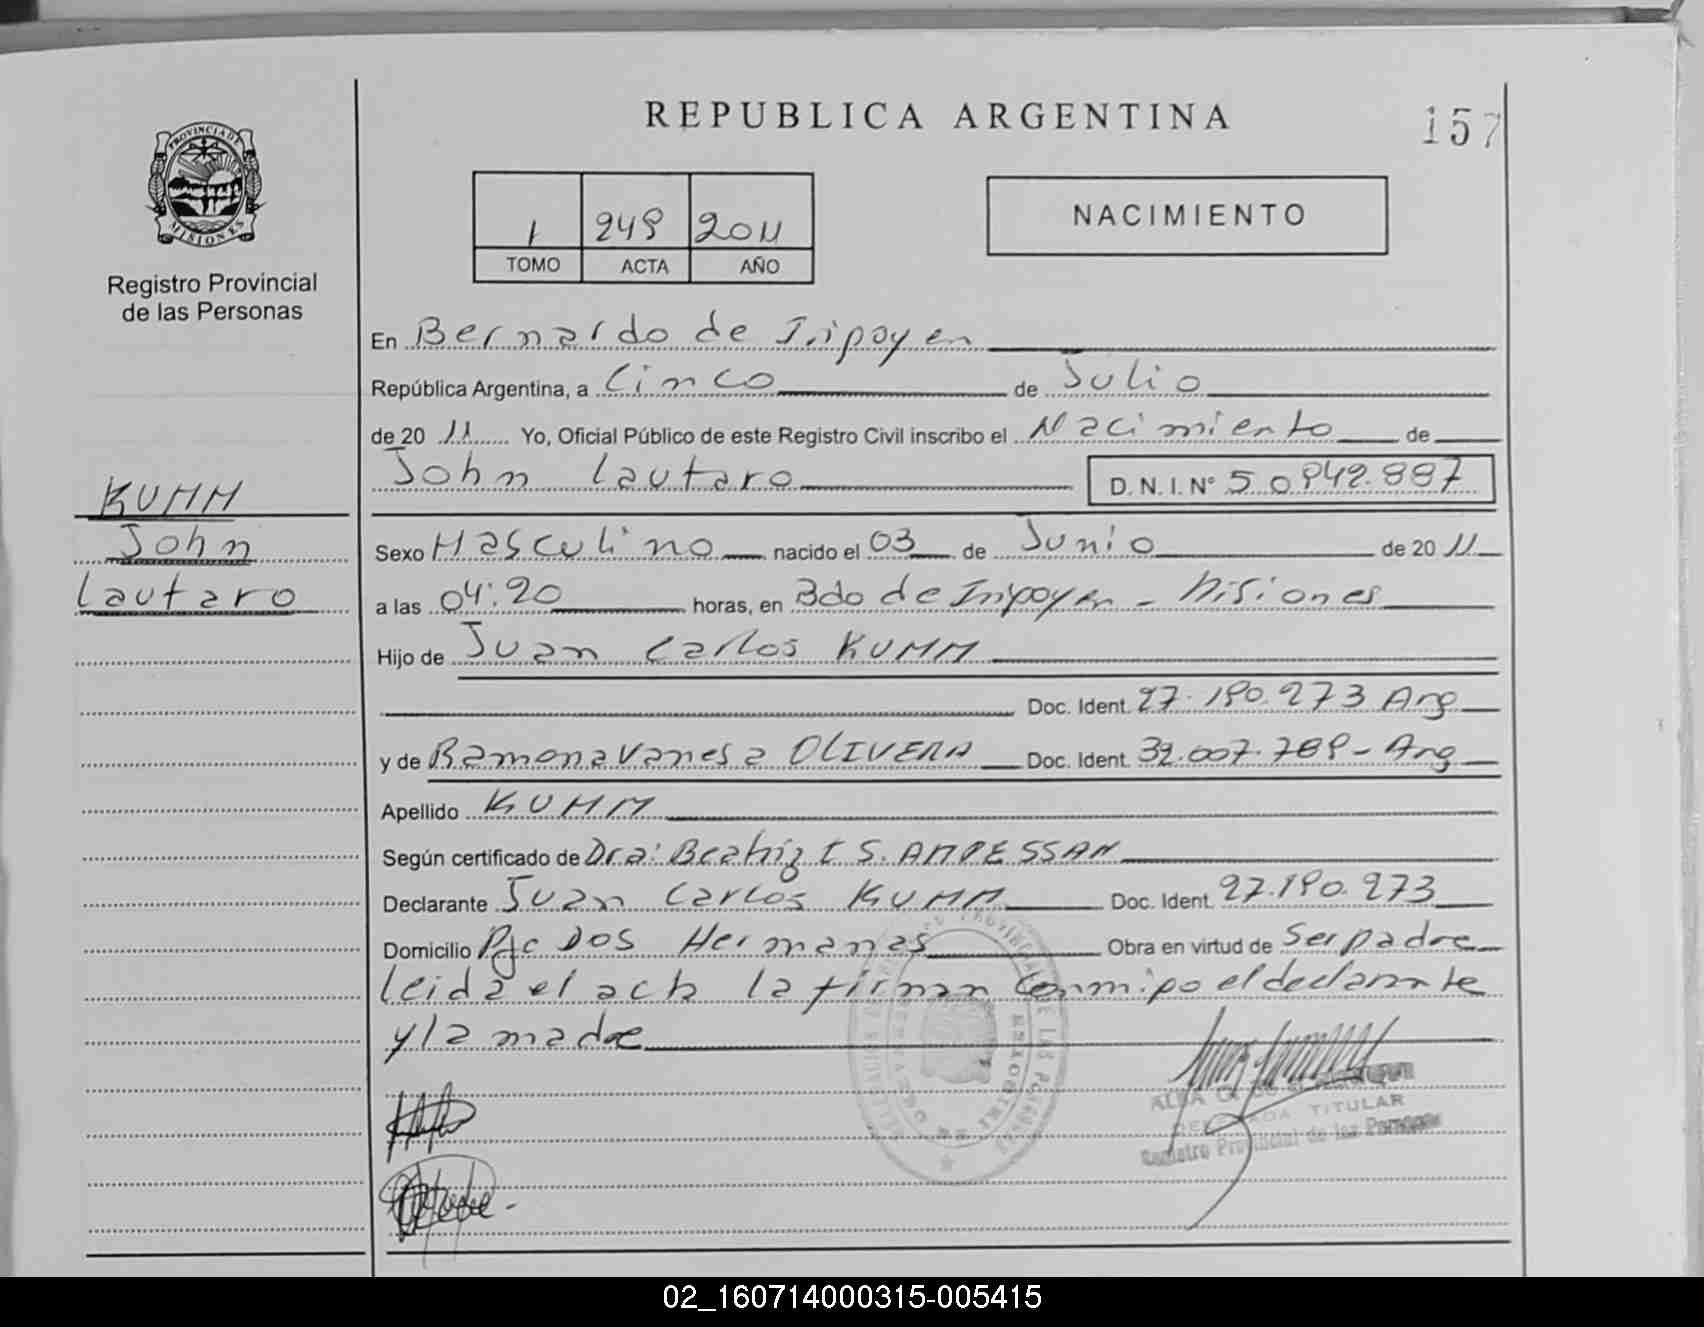 REPUBLICA ARGENTINA
157
PROVINCIA DE
MISIONES
Registro Provincial
de las Personas
1 249 2011
TOMO ACTA AÑO
NACIMIENTO
En Bernardo de Irigoyen
República Argentina, a Cinco de Julio
de 20 11 Yo, Oficial Público de este Registro Civil inscribo el Nacimiento de
John Lautaro D.N.I. N° 50.942.887
KUMM
John
Lautaro
Sexo Masculino nacido el 03 de Junio de 20 11
a las 04:20 horas, en Bdo de Irigoyen - Misiones
Hijo de Juan Carlos KUMM
Doc. Ident. 27.190.273 Arg
y de Ramona Vanesa OLIVERA Doc. Ident. 32.007.789 - Arg
Apellido KUMM
Según certificado de Dra: Beatriz S. AMPESSAN
Declarante Juan Carlos KUMM Doc. Ident. 27.190.273
Domicilio Pje Dos Hermanas Obra en virtud de Ser padre
leida el acta la firman conmigo el declarante
y la madre
ALBA
TITULAR
Registro Provincial de las Personas
02_160714000315-005415